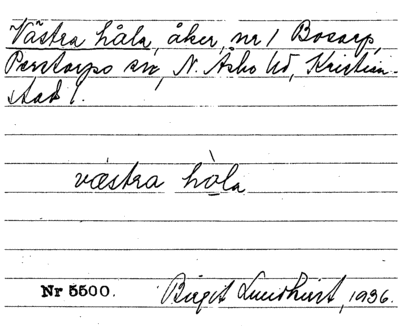 Västra håla, åker, nr 1 Bosarp,
Perstorps sn, N. Åsbo hd, Kristian-
stad l.
væstra hòla
Nr 5500. Birgit Lundkvist, 1936.